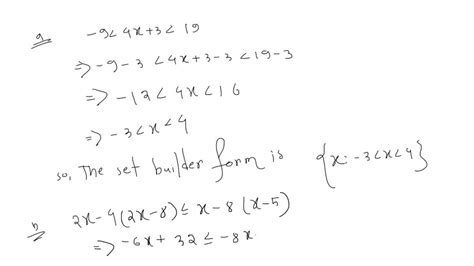 a  -9<4x+3<19
=> -9-3<4x+3-3<19-3
=> -12<4x<16
=> -3<x<4
so, The set builder form is {x: -3<x<4}
b  2x-4(2x-8)≤x-8(x-5)
=> -6x+32≤-8x